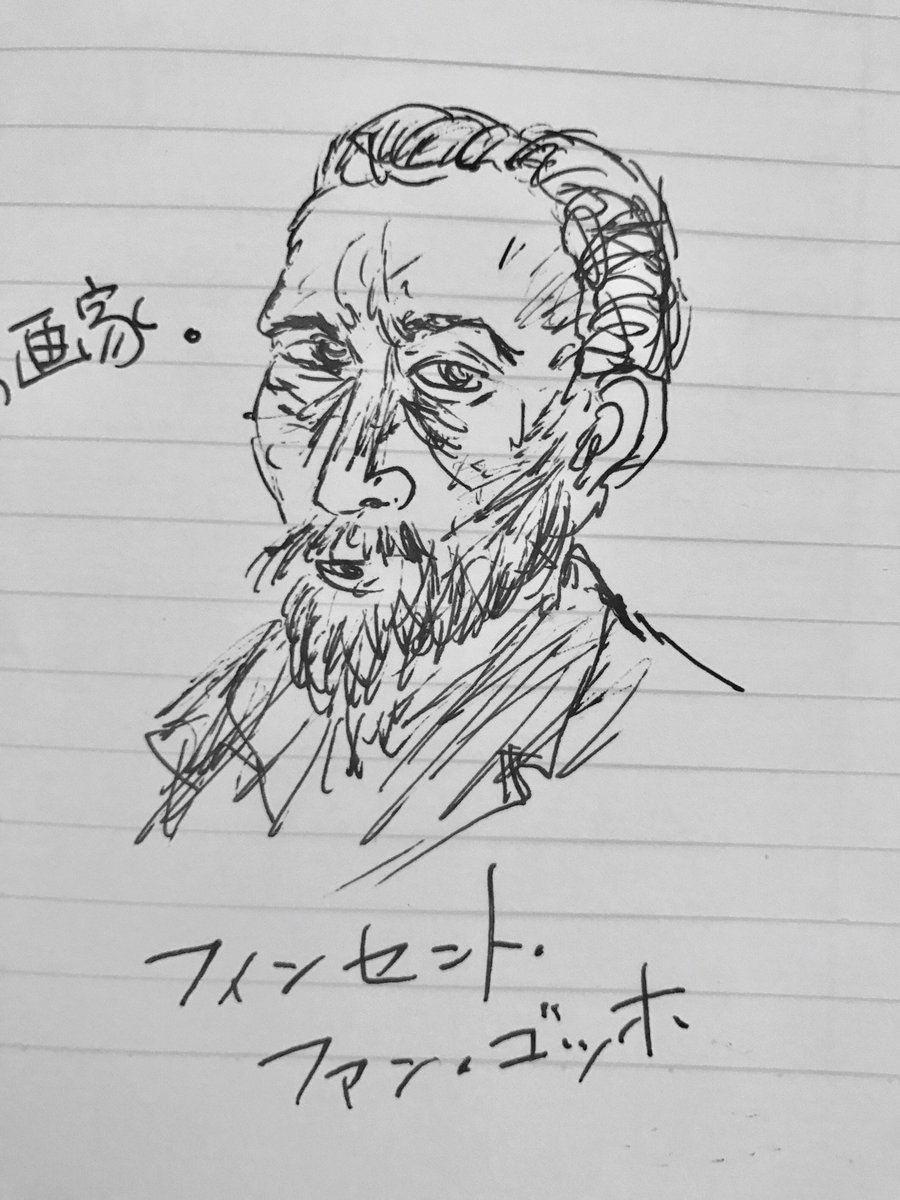 画家・
フィンセント・
ファン・ゴッホ